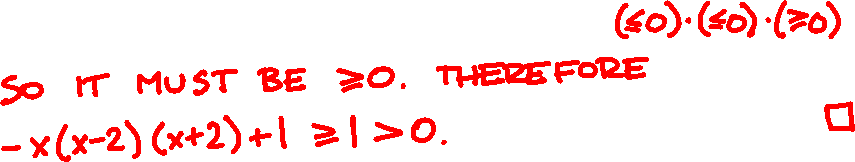 (≤0)·(≤0)·(≥0)
SO IT MUST BE ≥0. THEREFORE
-x(x-2)(x+2)+1 ≥ 1 > 0. □